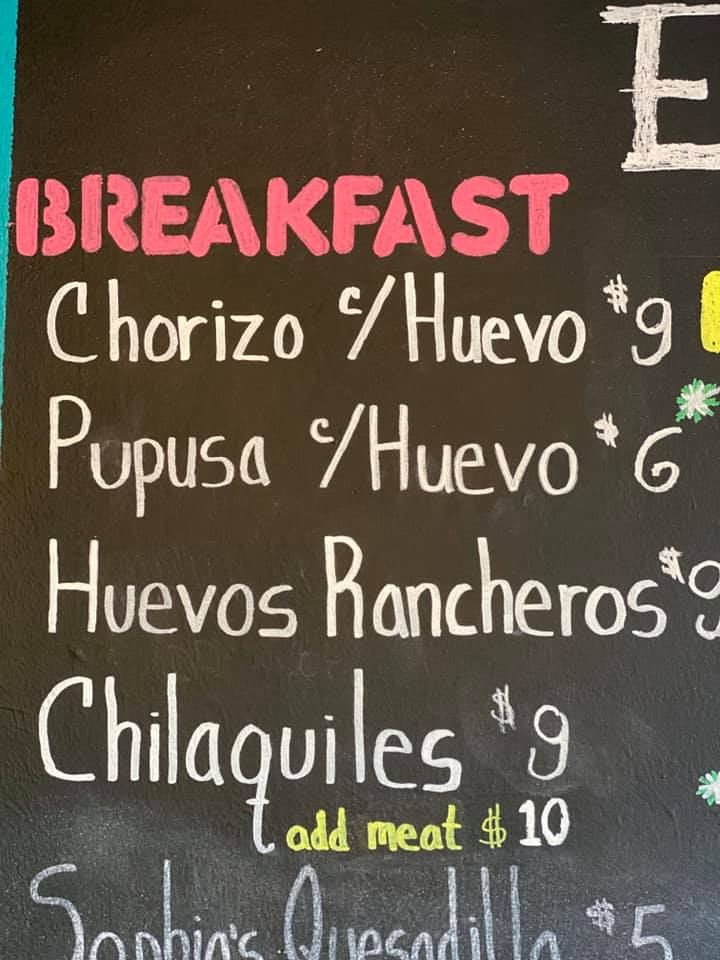 E
BREAKFAST
Chorizo c/Huevo $9
Pupusa c/Huevo $6
Huevos Rancheros $9
Chilaquiles $9
add meat $10
Sophia's Quesadilla $5